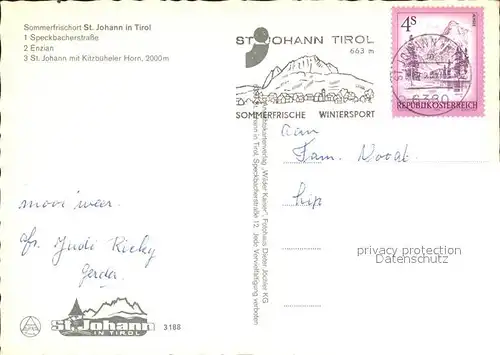 Sommerfrischort St. Johann in Tirol
1 Speckbacherstraße
2 Enzian
3 St. Johann mit Kitzbüheler Horn, 2000m
ST. JOHANN TIROL
663 m
SOMMERFRISCHE WINTERSPORT
4S
REPUBLIK ÖSTERREICH
6380
Aan
Fam.
mooi weer.
Judi Ricky
Gerda.
"Wilder Kaiser", Fotohaus Dieter Jöchler KG
in Tirol, Speckbacherstraße 12. Jede Vervielfältigung verboten
privacy protection
Datenschutz
St. Johann
IN TIROL
3188